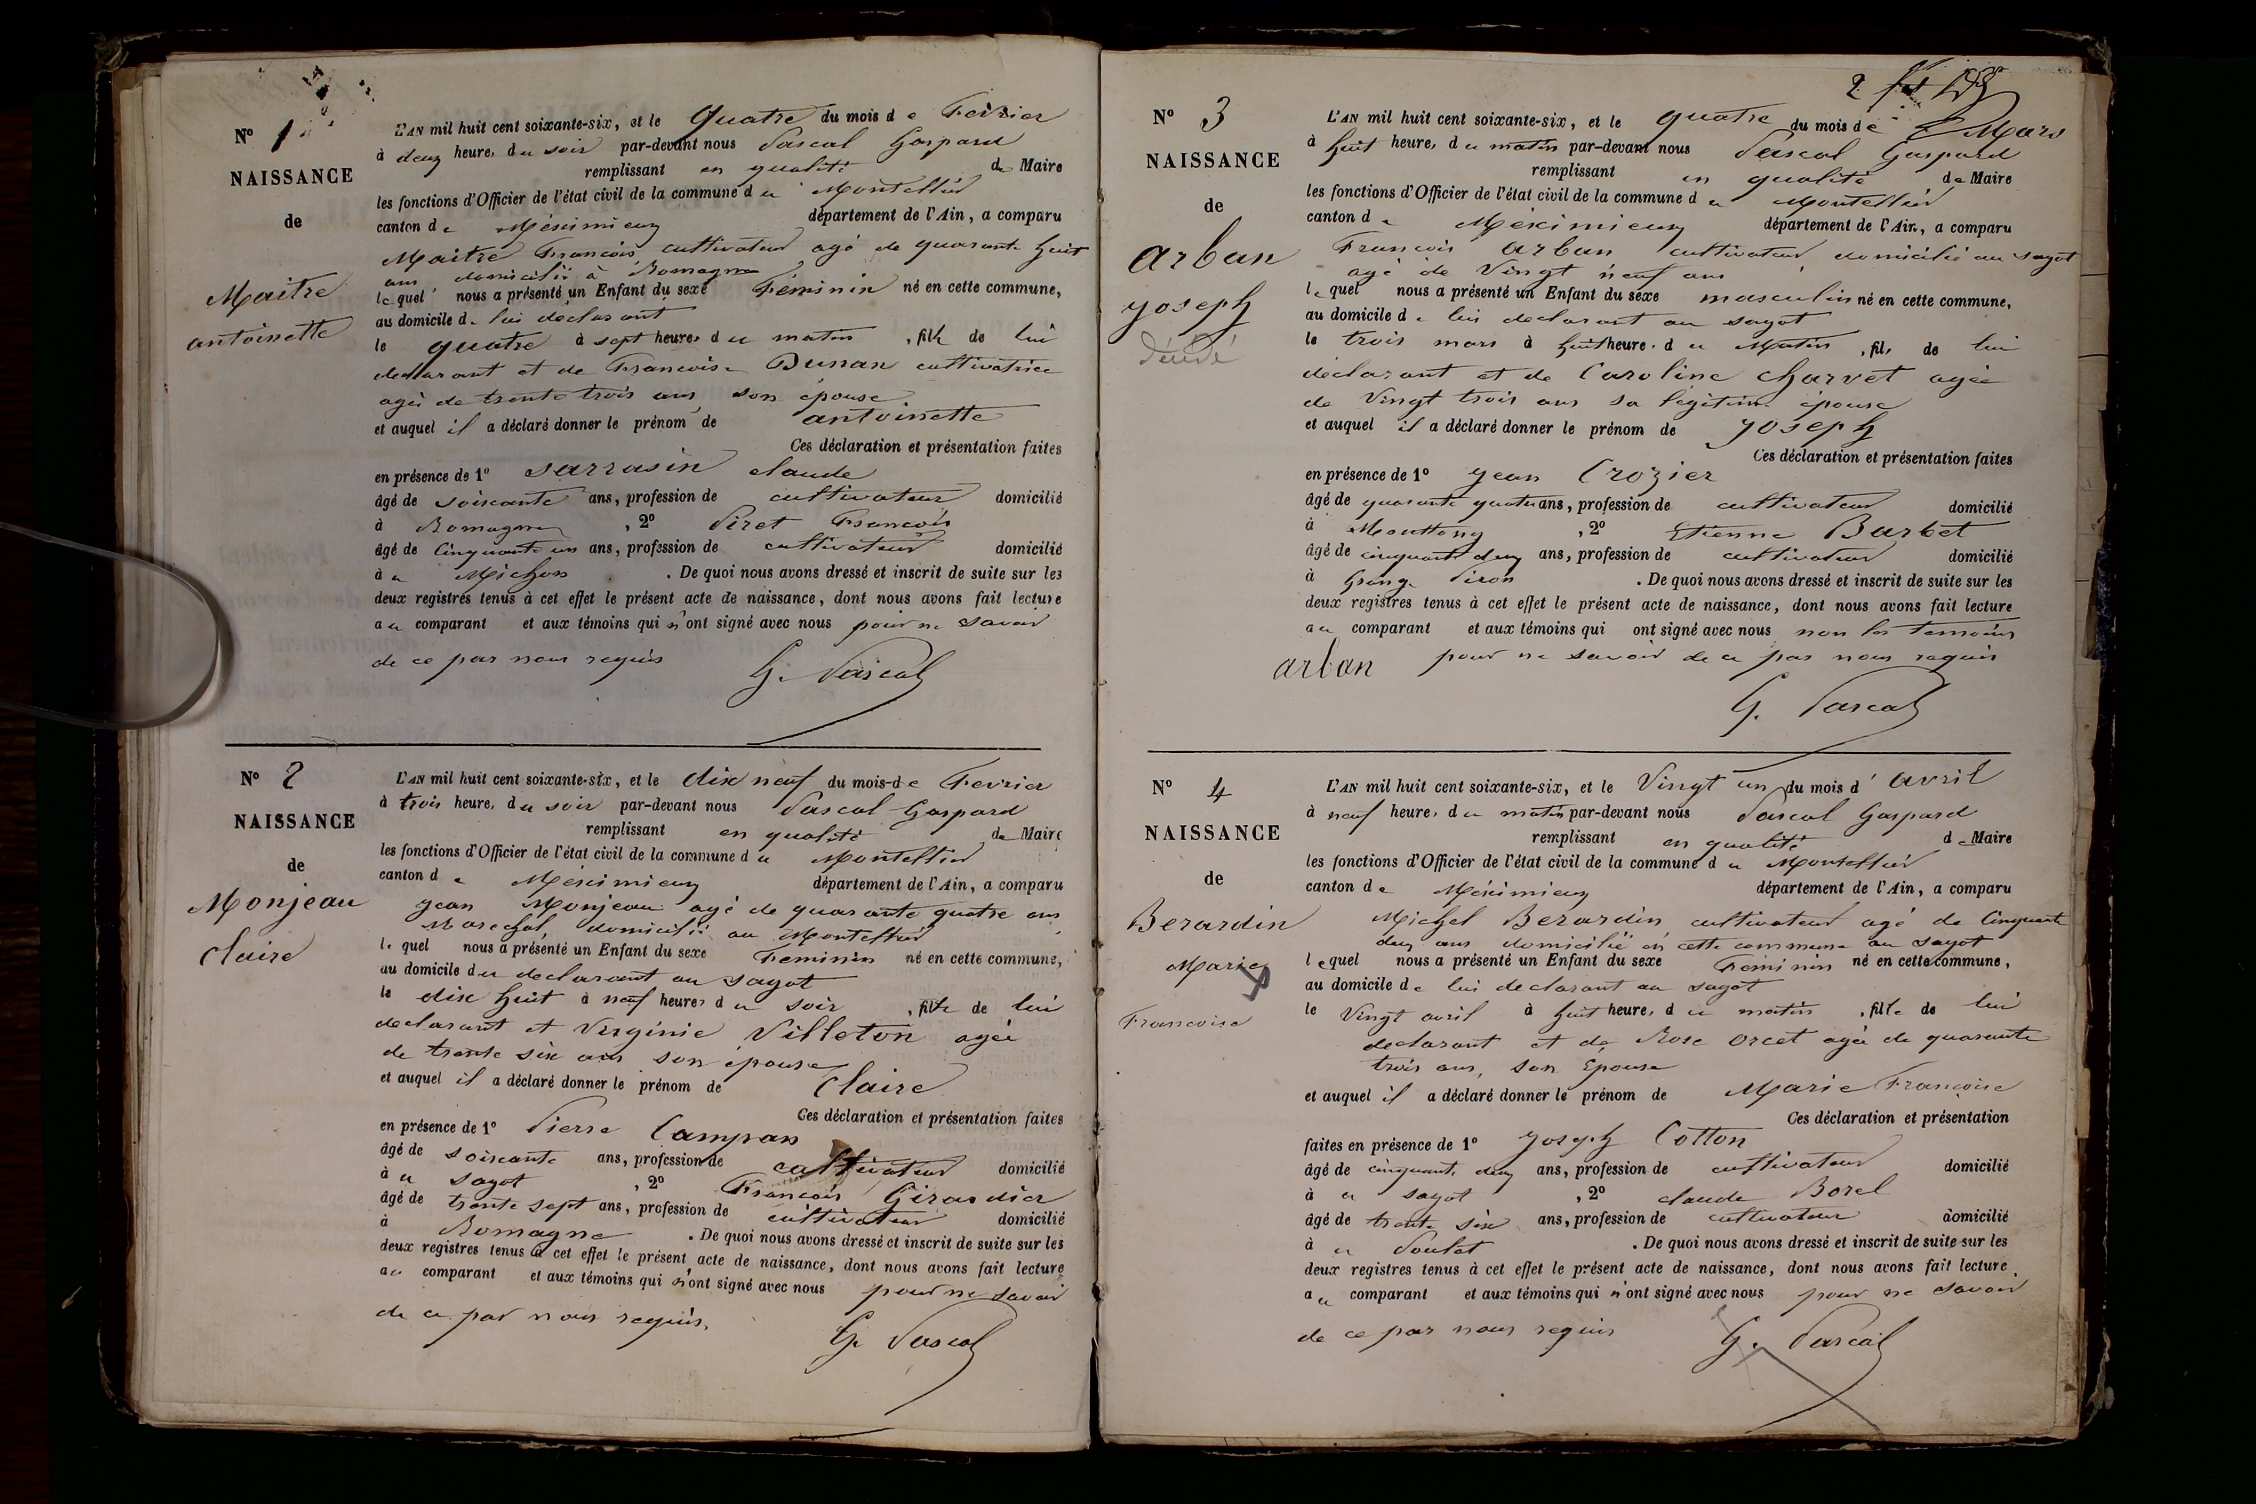 N° 1
NAISSANCE
de
Maitre
antoinette
L'AN mil huit cent soixante-six, et le quatre du mois de Fevrier
à deux heures du soir par-devant nous Pascal Gaspard
remplissant en qualité de Maire
les fonctions d'Officier de l'état civil de la commune du Montellier
canton de Meximieux département de l'Ain, a comparu
Maitre Francois, cultivateur agé de quarante huit
ans domicilié à Romagne
lequel nous a présenté un Enfant du sexe Feminin né en cette commune,
au domicile de lui declarant
le quatre à sept heures du matin, fille de lui
declarant et de Francoise Dunan cultivatrice
agée de trente trois ans son épouse
et auquel il a déclaré donner le prénom de antoinette
Ces déclaration et présentation faites
en présence de 1° Sarrasin claude
âgé de soixante ans, profession de cultivateur domicilié
à Romagne, 2° Piret Francois
âgé de Cinquante un ans, profession de cultivateur domicilié
au Michon. De quoi nous avons dressé et inscrit de suite sur les
deux registres tenus à cet effet le présent acte de naissance, dont nous avons fait lecture
au comparant et aux témoins qui n'ont signé avec nous pour ne savoir
de ce par nous requis
G. Pascal
N° 2
NAISSANCE
de
Monjeau
claire
L'AN mil huit cent soixante-six, et le dix neuf du mois de Fevrier
à trois heures du soir par-devant nous Pascal Gaspard
remplissant en qualité de Maire
les fonctions d'Officier de l'état civil de la commune du Montellier
canton de Meximieux département de l'Ain, a comparu
jean Monjeau agé de quarante quatre ans
Marechal, domicilié au Montellier
lequel nous a présenté un Enfant du sexe Feminin né en cette commune,
au domicile du declarant au sagot
le dix huit à neuf heures du soir, fille de lui
declarant et Virginie Villeton agée
de trente six ans son épouse
et auquel il a déclaré donner le prénom de Claire
Ces déclaration et présentation faites
en présence de 1° Pierre Campan
âgé de soixante ans, profession de cultivateur domicilié
au sagot, 2° Francois Girardier
âgé de trente sept ans, profession de cultivateur domicilié
à Romagne. De quoi nous avons dressé et inscrit de suite sur les
deux registres tenus à cet effet le présent acte de naissance, dont nous avons fait lecture
au comparant et aux témoins qui n'ont signé avec nous pour ne savoir
de ce par nous requis.
G. Pascal
2
N° 3
NAISSANCE
de
arban
yoseph
décédé
L'AN mil huit cent soixante-six, et le quatre du mois de Mars
à huit heures du matin par-devant nous Pascal Gaspard
remplissant en qualité de Maire
les fonctions d'Officier de l'état civil de la commune du Montellier
canton de Meximieux département de l'Ain, a comparu
Francois arban cultivateur domicilié au sagot
agé de Vingt neuf ans
lequel nous a présenté un Enfant du sexe masculin né en cette commune,
au domicile de lui declarant au sagot
le trois mars à huit heures du Matin, fils de lui
declarant et de Caroline charvet agée
de Vingt trois ans sa légitime épouse
et auquel il a déclaré donner le prénom de yoseph
Ces déclaration et présentation faites
en présence de 1° yean Crozier
âgé de quarante quatre ans, profession de cultivateur domicilié
à Monthony, 2° Etienne Barbet
âgé de cinquante deux ans, profession de cultivateur domicilié
à Grange Piron. De quoi nous avons dressé et inscrit de suite sur les
deux registres tenus à cet effet le présent acte de naissance, dont nous avons fait lecture
au comparant et aux témoins qui ont signé avec nous non les temoins
pour ne savoir de ce par nous requis
arban
G. Pascal
N° 4
NAISSANCE
de
Berardin
Marie
Francoise
L'AN mil huit cent soixante-six, et le Vingt un du mois d'avril
à neuf heures du matin par-devant nous Pascal Gaspard
remplissant en qualité de Maire
les fonctions d'Officier de l'état civil de la commune du Montellier
canton de Meximieux département de l'Ain, a comparu
Michel Berardin cultivateur agé de Cinquante
deux ans domicilié en cette commune au sagot
lequel nous a présenté un Enfant du sexe Feminin né en cette commune,
au domicile de lui declarant au sagot
le Vingt avril à huit heures du matin, fille de lui
declarant et de Rose orcet agée de quarante
trois ans, son Epouse
et auquel il a déclaré donner le prénom de Marie Francoise
Ces déclaration et présentation
faites en présence de 1° yoseph Cotton
âgé de cinquante deux ans, profession de cultivateur domicilié
à au sagot, 2° claude Borel
âgé de trente six ans, profession de cultivateur domicilié
à au Poulet. De quoi nous avons dressé et inscrit de suite sur les
deux registres tenus à cet effet le présent acte de naissance, dont nous avons fait lecture
au comparant et aux témoins qui n'ont signé avec nous pour ne savoir
de ce par nous requis
G. Pascal